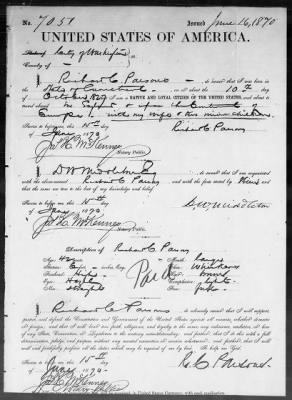 No. 7051 Issued June 16, 1870
UNITED STATES OF AMERICA.
State of City of Washington } ss:
County of
I, Richard C. Parsons, do swear that I was born in the
State of Connecticut, on or about the 10th day
of October 1826; that I am a NATIVE AND LOYAL CITIZEN OF THE UNITED STATES, and about to
travel in & upon the Continent of
Europe, with my wife & two minor children.
Sworn to before me, this 15th
of June 1870
Jas. H. McKenney Richard C. Parsons
Notary Public.
I, D. W. Middleton
with the above-named Richard C. Parsons, and with the facts stated by him
and that the same are true to the best of my knowledge and belief.
Sworn to before me, this 15th
of June 1870 D. W. Middleton
Jas. H. McKenney
Notary Public.
Description of Richard C. Parsons
Age:
Stature: Mouth: Large
Forehead: High Chin: Whiskers
Eyes: Hair: Brown
Nose: Complexion: Light
Face:
Paid
I, Richard C. Parsons, do solemnly swear that I will support,
protect, and defend the Constitution and Government of the United States against all enemies, whether domestic
or foreign; and that I will bear true faith, allegiance, and loyalty to the same, any ordinance, resolution, or law
of any State, Convention, or Legislature to the contrary notwithstanding; and further, that I do this with a full
determination, pledge, and purpose, without any mental reservation or evasion whatsoever; and further, that I will
well and faithfully perform all the duties which may be required of me by law. So help me God.
Sworn to before me, this 15th
of June 1870 R. C. Parsons
Jas. H. McKenney
Notary Public